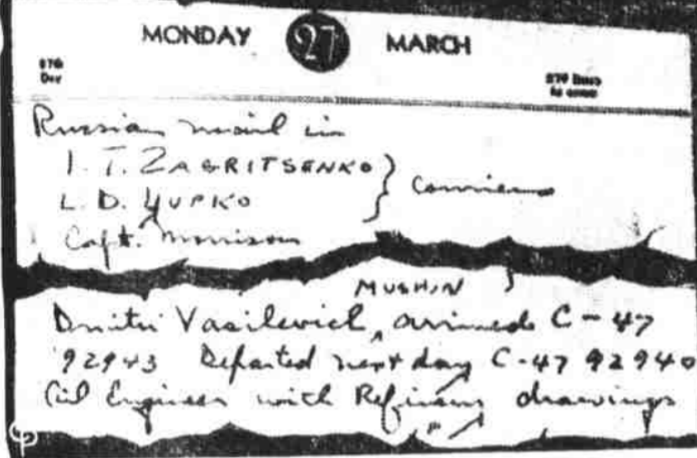 MONDAY 27 MARCH
87th
Day
279 Days
to come
Russian mail in
I. T. ZAGRITSENKO
L. D. YUPKO } Couriers
Capt. Morrison
MUSHIN
Dmitri Vasilevich, arrived C-47
92943 Departed next day C-47 92940
Oil Engineer with Refinery drawings